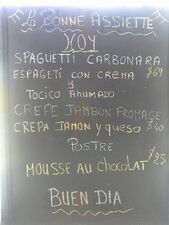 La Bonne Assiette
HOY
SPAGUETTI CARBONARA
ESPAGETI CON CREMA $69
Y
TOCICO AHUMADO
CREPE JAMBON FROMAGE
CREPA JAMON y queso $40
POSTRE
MOUSSE AU CHOCOLAT $25
BUEN DIA